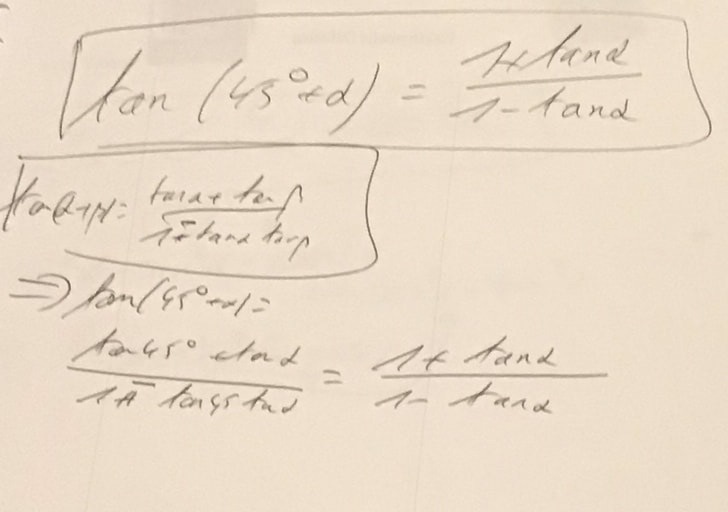 tan (45° + α) = (1 + tanα) / (1 - tanα)
tan(α+β) = (tanα + tanβ) / (1 - tanα tanβ)
⇒ tan(45° + α) =
(tan45° + tanα) / (1 - tan45 tanα) = (1 + tanα) / (1 - tanα)